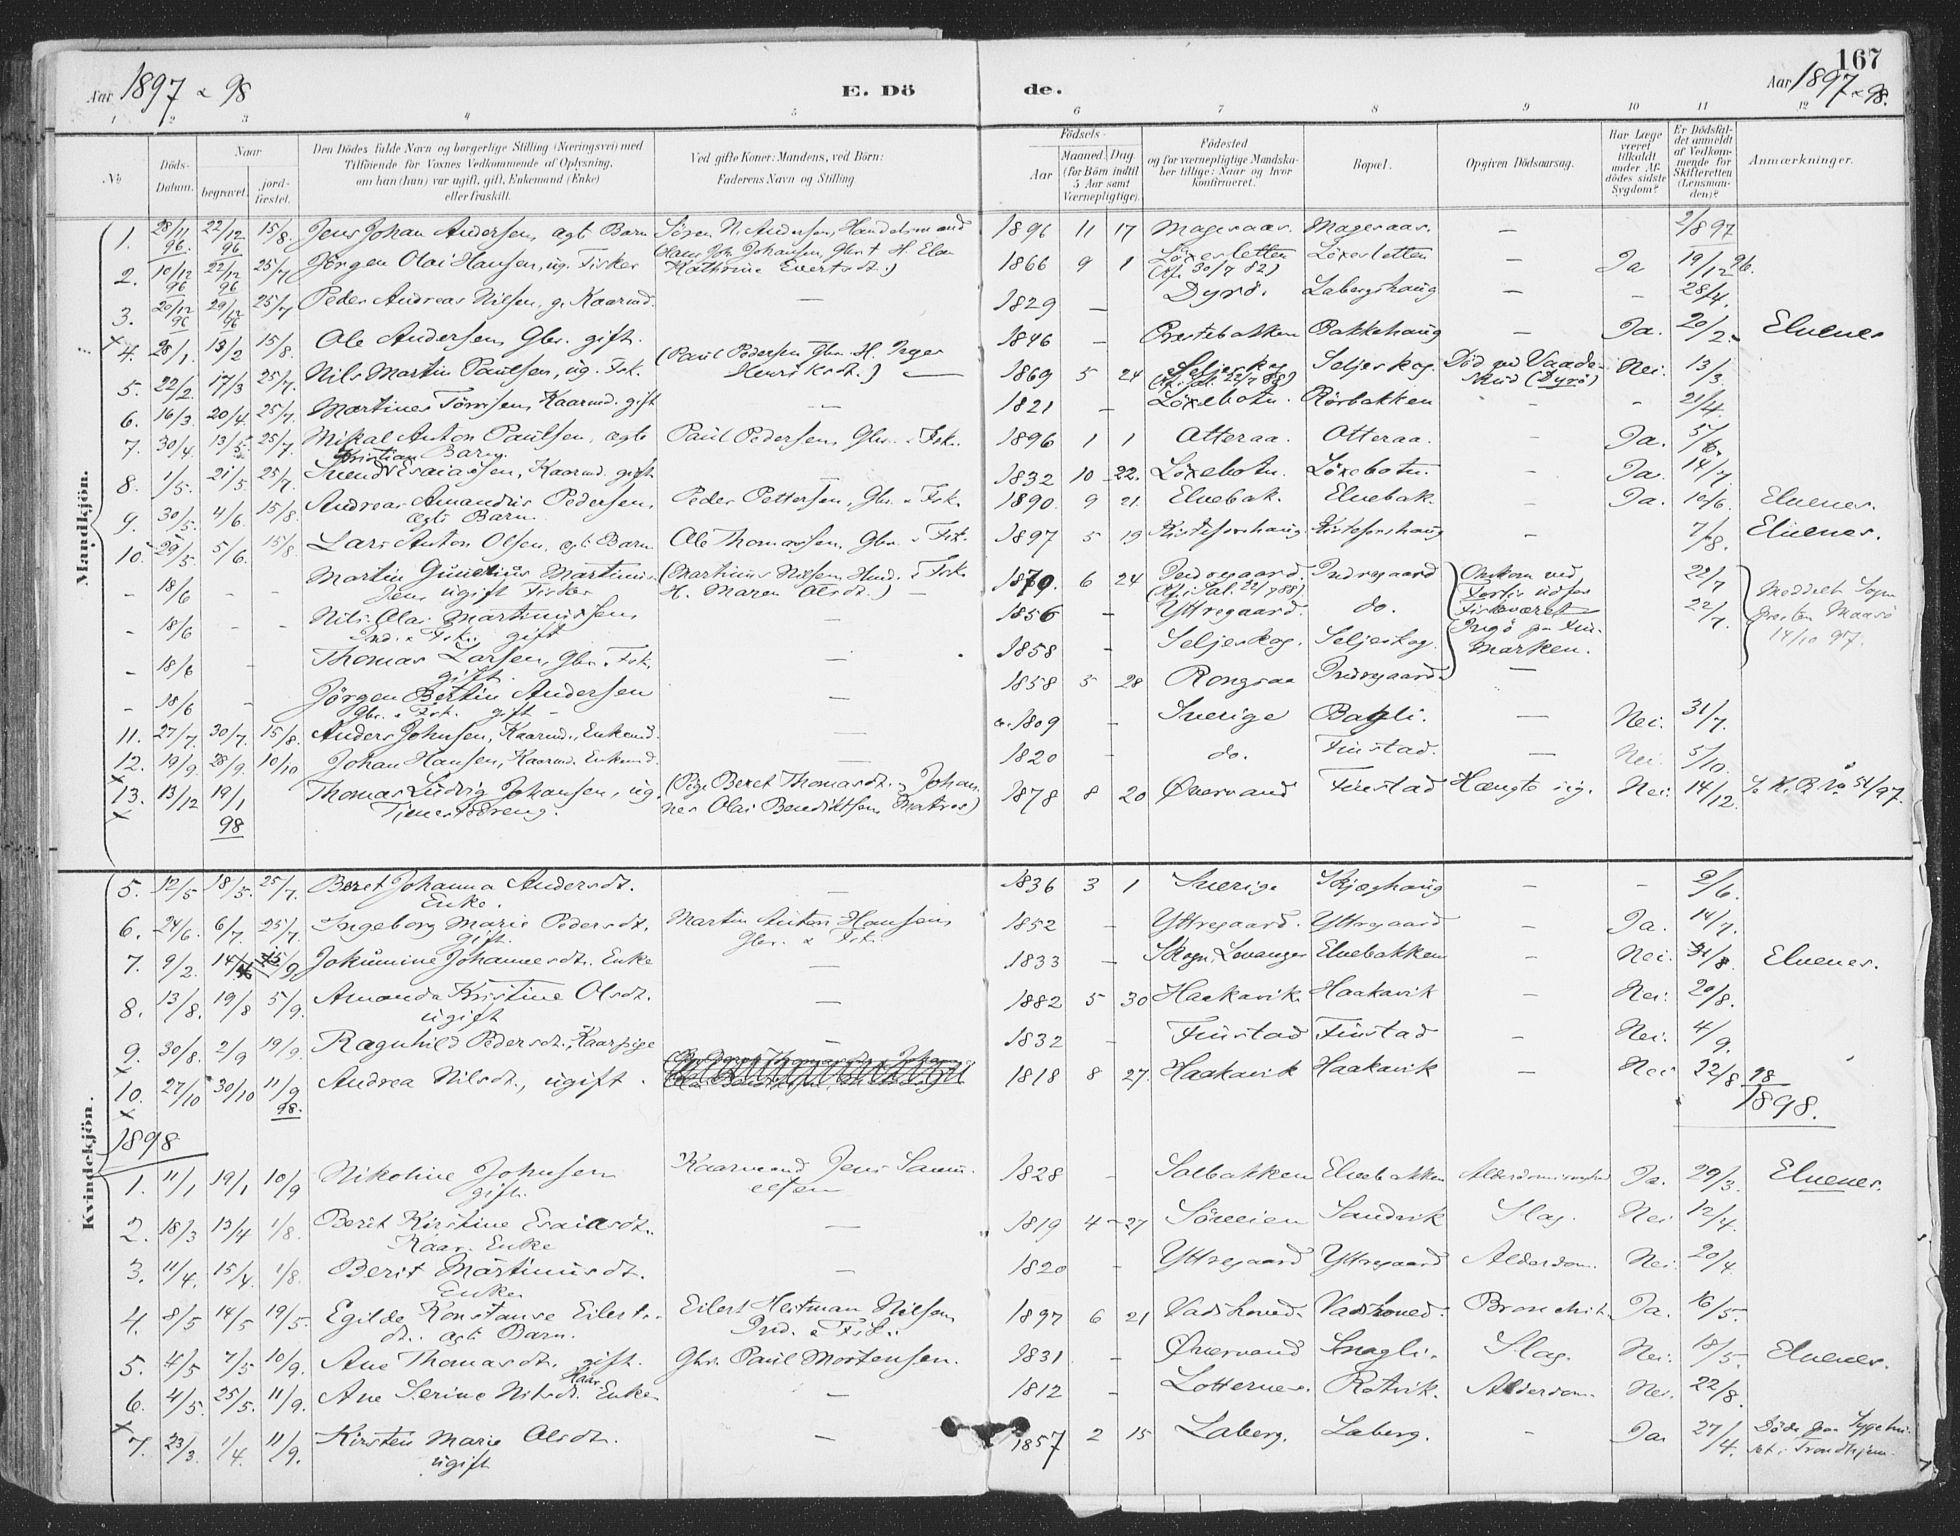 167
Aar 1897 & 98 E. Dö de. Aar 1897 & 98.
1 2 3 4 5 6 7 8 9 10 11 12
No Döds-Datum. Naar begravet. jordfæstet. Den Dödes fulde Navn og borgerlige Stilling (Næringsvei) med Tilföiende for Voxnes Vedkommende af Oplysning, om han (hun) var ugift, gift, Enkemand (Enke) eller fraskilt. Ved gifte Koner: Mandens, ved Börn: Faderens Navn og Stilling Födsels- Aar Maaned. Dag. (for Börn indtil 5 Aar samt Værnepligtige). Födested og for værnepligtige Mandskaber tillige: Naar og hvor konfirmeret. Bopæl. Opgiven Dödsaarsag. Har Læge været tilkaldt under Afdödes sidste Sygdom? Er Dödsfaldet anmeldt af Vedkommende for Skifteretten (Lensmanden)? Anmærkninger.
Mandkjön.
1. 28/11 96. 22/12 96 15/8. Jens Johan Andersen, ægt Barn Sören N. Andersen, Handelsmand 1896 11 17 Mageraar. Mageraar. — 2/8 97
2. 10/12 96 22/12 96 25/7 Jörgen Olai Hansen, ug. Fisker (Hans Joh. Johansen, Gbr. & H. Elen Kathrine Evertsdt.) 1866 9 1 Löxesletten (Kf. 30/7 82) Löxesletten — Ja 19/12 96.
3. 20/12 96 29/12 96 25/7 Peder Andreas Nilsen, g. Kaarmd. — 1829 — Dyrö. Labergshaug — - 28/4.
4. 28/1. 13/2 15/8. Ole Andersen Gbr. gift. 1846 — Prestebakken Bakkehaug — Ja. 20/2. Elvenes
5. 22/2 17/3 25/7. Nils Martin Paulsen, ug. Fsk. (Paul Pedersen Gbr. H. Inger Henriksdt.) — 1869 5 24 Seljeskog (Kf. i Sal. 22/7 88) Seljeskog. Död ved Vaade-Skud (Dyrö) Nei. 13/3.
6. 16/3. 20/4. 25/7. Martines Tönnesen, Kaarmd. gift — 1821 — Löxebotn. Rörbakken - - 21/4.
7. 30/4. 13/5. 25/7. Mikal Anton Paulsen, ægte Barn. Paul Pedersen, Gbr. & Fsk. 1896 1 1 Otteraa. Otteraa. Ja. 5/6.
8. 1/5. 21/5 25/7. Svend Kristian Esaiassen, Kaarmd. gift. — 1832 10 22. Löxebotn. Löxebotn. Ja. 14/7.
9. 30/5. 4/6. 15/8. Andreas Amandus Pedersen, ægte Barn Peder Pettersen, Gbr. & Fsk. 1890 9 21. Elvebak. Elvebak. - Ja. 10/6. Elvenes.
10. 29/5. 5/6. 15/8 Lars Anton Olsen, ægt. Barn Ole Thomassen, Gbr. & Fsk. 1897 5 19 Kisteforshaug. Kisteforshaug - 7/8. Elvenes.
- 18/6 - - Martin Gunerius Martinussen ugift Fisker (Martinus Nilsen Ind. & Fsk. H. Maren Olsdt.) — 1870. 6 24 Indregaard. (Kf. i Sal. 22/7 88) Indregaard Omkom ved Forlis udfor Fiskeværet Ingö paa Finmarken. 22/7 Meddelt Sognepresten Maasö 14/10 97.
- 18/6 - - Nils Olai Martinussen Ind. & Fsk. gift — 1856 - Yttregaard. do. 22/7.
- 18/6 - Thomas Larsen, Gbr. & Fsk. gift. — 1858 - Seljeskog. Seljeskog.
- 18/6 - Jörgen Bertin Andersen Gbr. & Fsk. gift — 1858 5 28 Rongsaa Indregaard —
11. 27/7. 30/7. 15/8. Anders Johnsen, Kaarmd., Enkemd. — 1809 - Sverige Bagli. — Nei. 31/7.
12. 19/9. 28/9. 10/10 Johan Hansen, Kaarmd. Enkemd. — 1820 - do. Finstad. — Nei. 5/10.
13. 13/12 19/1 98 Thomas Ludvig Johansen, ug. Tjenestdreng. (Pige Beret Thomasdt. & Johannes Olai Benediktsen Matros) 1878 8 20 Övervand Finstad Hængte sig. Nei. 14/12. 51/97.
Kvindekjön.
5. 12/5 18/5. 25/7. Beret Johanna Andersdt. Enke. — 1836 3 1 Sverige Skjæghaug — - 2/6.
6. 24/6. 6/7. 25/7. Ingeborg Marie Pedersdt. gift. Martin Anton Hansen Gbr. & Fsk. 1852 - Yttregaard. Yttregaard - Ja. 14/7.
7. 9/2. 14/ 15/9. Jokumine Johannesdt. Enke — 1833 - Skogn, Levanger Elvebakken - Nei. 31/8. Elvenes.
8. 13/8. 19/8 5/9. Amanda Kristine Olsdt. ugift — 1882 5 30 Haakavik. Haakavik - Nei. 20/8.
9. 30/8. 2/9 19/9. Ragnhild Pedersdt., Kaarpige — 1832 - Finstad Finstad - Nei. 4/9.
10. 27/10 30/10 11/9 98. Andrea Nilsdt., ugift. 1818 8 27. Haakavik Haakavik - Nei 22/8 98
1898 1898.
1. 11/1 19/1 10/9 Nikoline Johnsen gift. Kaarmand Jens Samuelsen 1828 - Solbakken Elvebakken Ja. 29/3. Elvenes.
2. 18/3 13/4 1/8. Berit Kirstine Esaiasdt. Kaar. Enke — 1819 4 27 Sandvik Slag. Nei 12/4.
3. 11/4. 15/4. 1/8. Berit Martinusdt. Enke. — 1820 - Yttregaard Yttregaard Alderdom. Nei. 20/4
4. 8/5 14/5 19/5. Egilde Konstanse Eilertsdt. ægt. Barn. Eilert Heitman Nilsen, Ind. & Fsk. 1897 6 21 Vadshoved. Vadshoved. Bronchit. Ja. 16/5.
5. 4/5 7/5 10/9. Ane Thomasdt. gift. Gbr. Paul Mortensen. 1831. - Övervand Snogli. Slag. Nei. 18/5. Elvenes.
6. 4/5. 25/5. 11/9. Ane Serine Nilsdt. Kaar. Enke. — 1812 - Lotternes. Rotvik. Alderdom. Nei. 22/8.
7. 23/3. 1/4. 11/9. Kirsten Marie Olsdt. ugift — 1857 2 15 Laberg. Laberg. - Ja 27/4. Döde paa Sygehuset i Trondhjem.